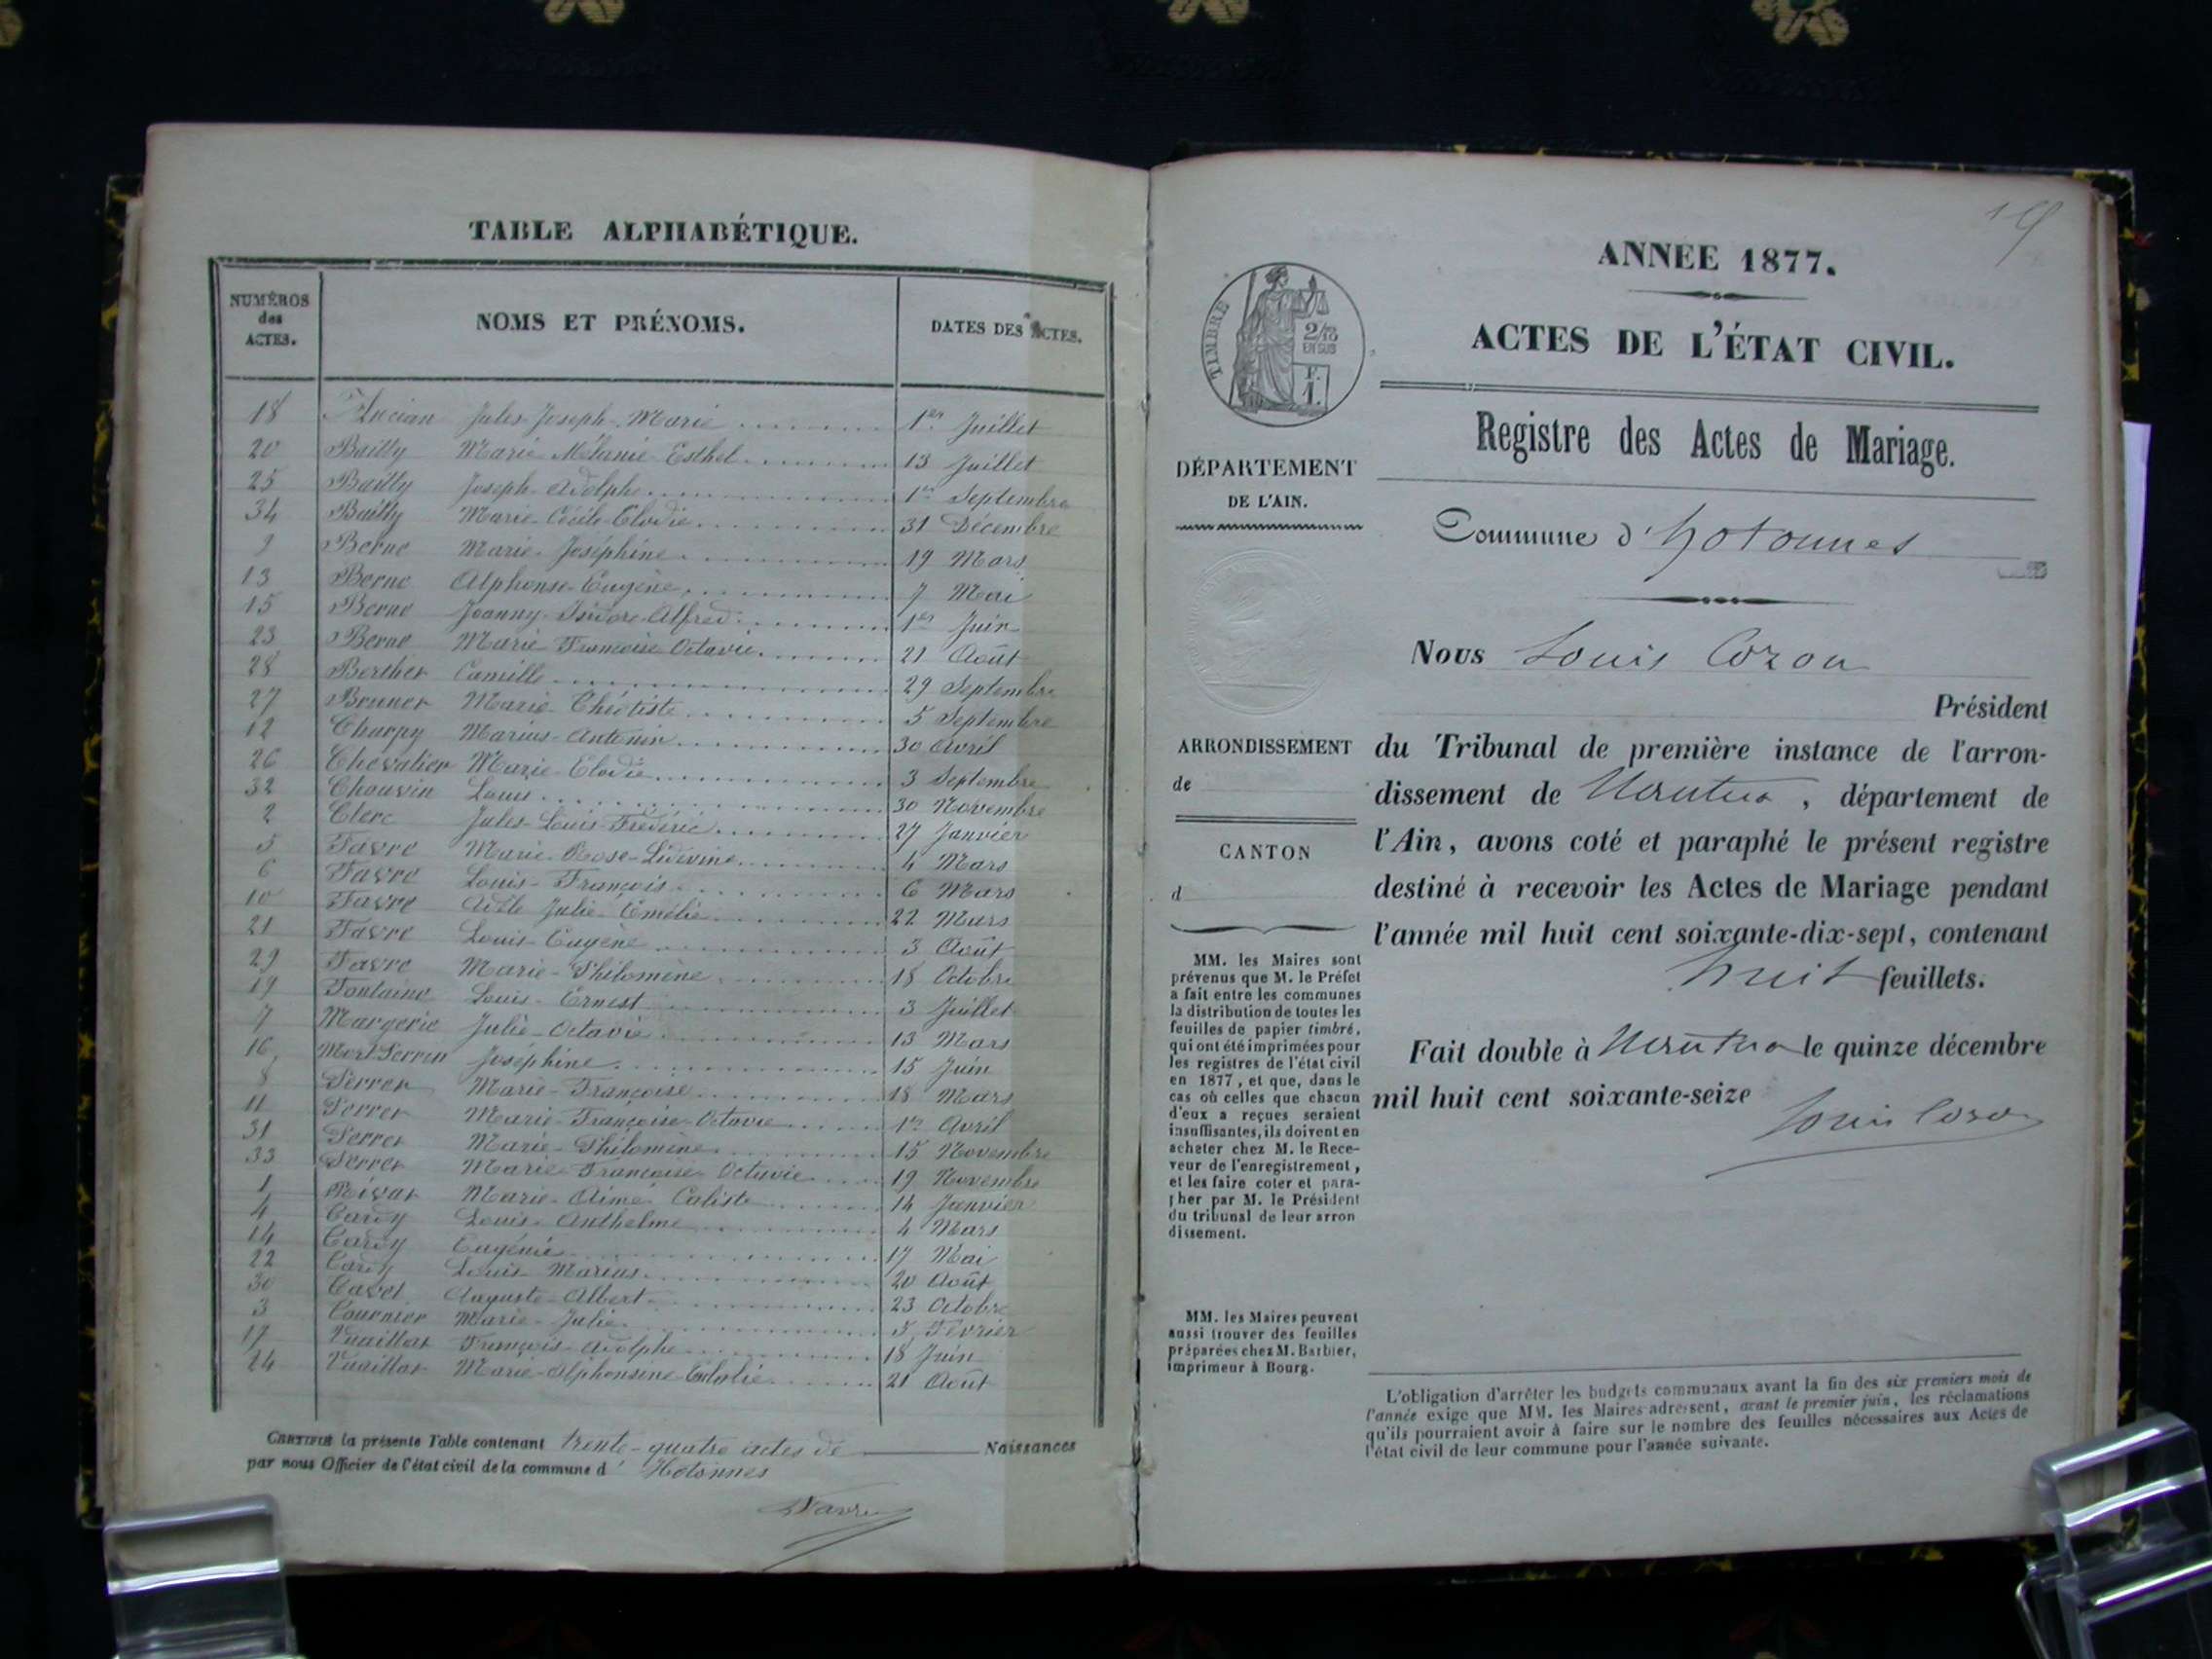 TABLE ALPHABÉTIQUE.
NUMÉROS des ACTES.
NOMS ET PRÉNOMS.
DATES DES ACTES.
18 Jules Joseph Marie 1er Juillet
20 Bailly Marie Mélanie Esthel 13 Juillet
25 Bailly Joseph Adolphe 1er Septembre
34 Bailly Marie Cécile Elodie 31 Décembre
9 Berne Marie Joséphine 19 Mars
13 Berne Alphonse Eugène 7 Mai
15 Berne Joanny Isidore Alfred 1er Juin
23 Berne Marie Françoise Octavie 21 Août
28 Berthet Camille 29 Septembre
27 Brunet Marie Théotiste 5 Septembre
12 Charpy Marius Antonin 30 Avril
26 Chevalier Marie Elodie 3 Septembre
32 Chouvin Louis 30 Novembre
2 Clerc Jules Louis Frédéric 27 Janvier
5 Favre Marie Rose Lidivine 4 Mars
6 Favre Louis François 6 Mars
10 Favre Adèle Julie Emélie 22 Mars
21 Favre Louis Eugène 3 Août
29 Favre Marie Philomène 18 Octobre
19 Fontaine Louis Ernest 3 Juillet
7 Margerie Julie Octavie 13 Mars
16 Mort Perrin Joséphine 15 Juin
8 Perret Marie Françoise 18 Mars
11 Perret Marie Françoise Octavie 1er Avril
31 Perret Marie Philomène 15 Novembre
33 Perret Marie Françoise Octavie 19 Novembre
1 Marie Aimé Caliste 14 Janvier
4 Louis Anthelme 4 Mars
14 Eugénie 17 Mai
22 Louis Marius 20 Août
30 Auguste Albert 23 Octobre
3 Tournier Marie Julie 5 Février
17 Vuaillat François Adolphe 18 Juin
24 Vuaillat Marie Alphonsine 21 Août
CERTIFIÉ la présente Table contenant trente-quatre actes de Naissances
par nous Officier de l'état civil de la commune d'Hotonnes
Favre
19
ANNÉE 1877.
ACTES DE L'ÉTAT CIVIL.
Registre des Actes de Mariage.
TIMBRE
2/10
EN SUS
F.
1.
DÉPARTEMENT
DE L'AIN.
Commune d'Hotonnes
Nous Louis Cozon
Président
ARRONDISSEMENT
de
CANTON
d
du Tribunal de première instance de l'arron-
dissement de Nantua, département de
l'Ain, avons coté et paraphé le présent registre
destiné à recevoir les Actes de Mariage pendant
l'année mil huit cent soixante-dix-sept, contenant
huit feuillets.
Fait double à Nantua le quinze décembre
mil huit cent soixante-seize
Louis Cozon
MM. les Maires sont
prévenus que M. le Préfet
a fait entre les communes
la distribution de toutes les
feuilles de papier timbré,
qui ont été imprimées pour
les registres de l'état civil
en 1877, et que, dans le
cas où celles que chacun
d'eux a reçues seraient
insuffisantes, ils doivent en
acheter chez M. le Rece-
veur de l'enregistrement,
et les faire coter et para-
pher par M. le Président
du tribunal de leur arron
dissement.
MM. les Maires peuvent
aussi trouver des feuilles
préparées chez M. Barbier,
imprimeur à Bourg.
L'obligation d'arrêter les budgets communaux avant la fin des six premiers mois de
l'année exige que MM. les Maires adressent, avant le premier juin, les réclamations
qu'ils pourraient avoir à faire sur le nombre des feuilles nécessaires aux Actes de
l'état civil de leur commune pour l'année suivante.